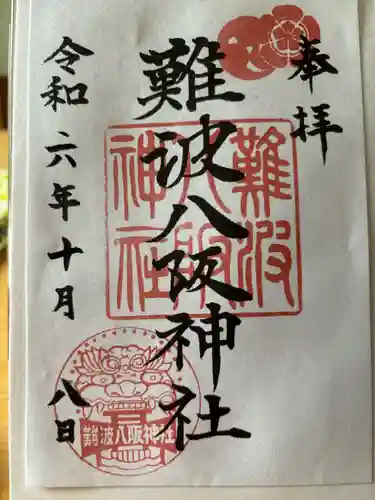 奉拝
難波八阪神社
令和六年十月八日
難波八阪神社
難波八阪神社